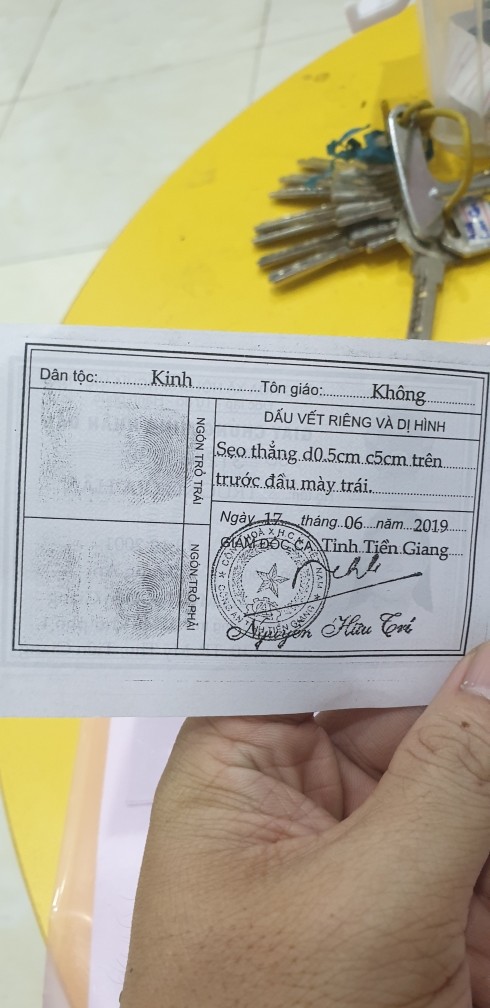 Dân tộc:..............Kinh.................Tôn giáo:............Không............
NGÓN TRỎ TRÁI
DẤU VẾT RIÊNG VÀ DỊ HÌNH
Sẹo thẳng d0.5cm c5cm trên
trước đầu mày trái.
Ngày 17 tháng 06 năm 2019
GIÁM ĐỐC CA Tỉnh Tiền Giang
NGÓN TRỎ PHẢI
Nguyễn Hữu Trí